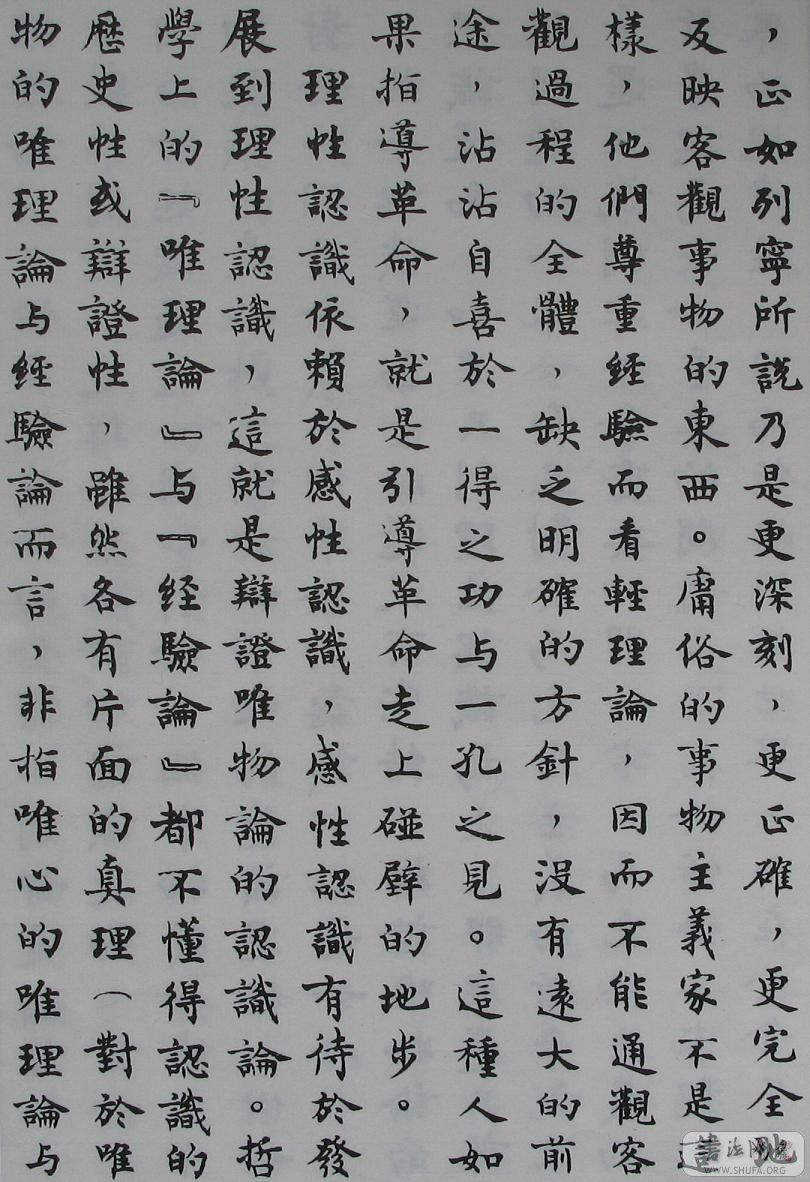 ，正如列寧所說乃是更深刻，更正確，更完全地
反映客觀事物的東西。庸俗的事物主義家不是這
樣，他們尊重經驗而看輕理論，因而不能通觀客
觀過程的全體，缺乏明確的方針，沒有遠大的前
途，沾沾自喜於一得之功与一孔之見。這種人如
果指導革命，就是引導革命走上碰壁的地步。
理性認識依賴於感性認識，感性認識有待於發
展到理性認識，這就是辯證唯物論的認識論。哲
學上的『唯理論』与『经驗論』都不懂得認識的
歷史性或辯證性，雖然各有片面的真理（對於唯
物的唯理論与經驗論而言，非指唯心的唯理論与
書法网
WWW.SHUFA.ORG